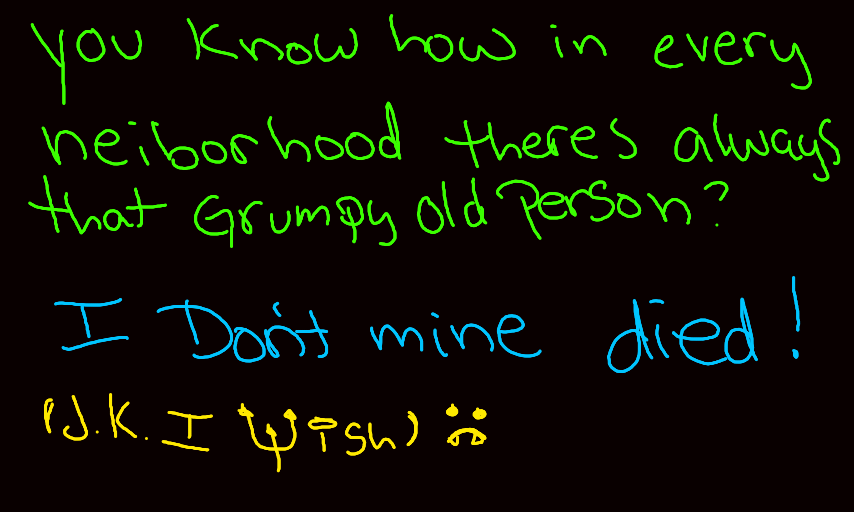 you know how in every
neiborhood theres always
that Grumpy old Person?
I Don't mine died!
(J.K. I Wish) :(